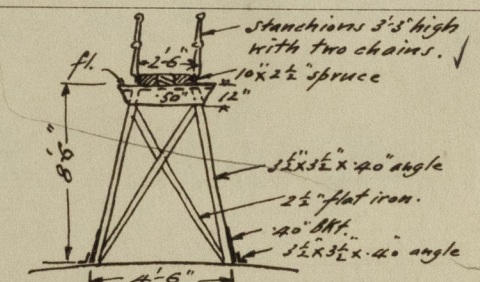 stanchions 3'-3" high
with two chains. ✓
2'-6"
10" x 2½" spruce
fl.
.50"
12"
8'6"
3½" x 3½" x .40" angle
2½" flat iron.
.40" BKt.
3½" x 3½" x .40" angle
4'-6"